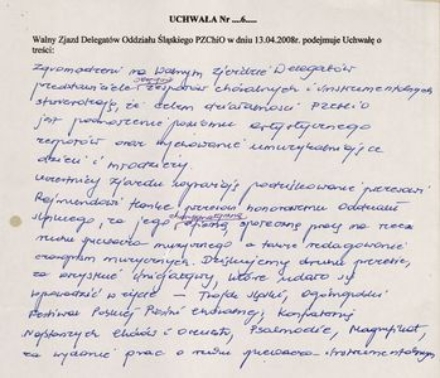 UCHWAŁA Nr ....6.....
Walny Zjazd Delegatów Oddziału Śląskiego PZChiO w dniu 13.04.2008r. podejmuje Uchwałę o
treści:
Zgromadzeni na Walnym Zjeździe Delegatów
przedstawiciele zespołów chóralnych i instrumentalnych
stwierdzają, że celem działalności PZChiO
jest podnoszenie poziomu artystycznego
zespołów oraz wychowanie umuzykalniające
dzieci i młodzieży.
Uczestnicy zjazdu wyrażają podziękowanie prezesowi
Rajmundowi Hanke prezesowi honorowemu oddziału
śląskiego, za jego ofiarną społeczną pracę na rzecz
ruchu śpiewaczo muzycznego a także redagowanie
czasopism muzycznych. Dziękujemy druhu prezesie,
za wszystkie inicjatywy, które udało się
wprowadzić w życie — Trojok śląski, Ogólnopolski
Festiwal Polskiej Pieśni Chóralnej, Konfraternię
Najstarszych Chórów i Orkiestr, Psalmodie, Magnifikat,
za wydanie prac o ruchu śpiewaczo-instrumentalnym